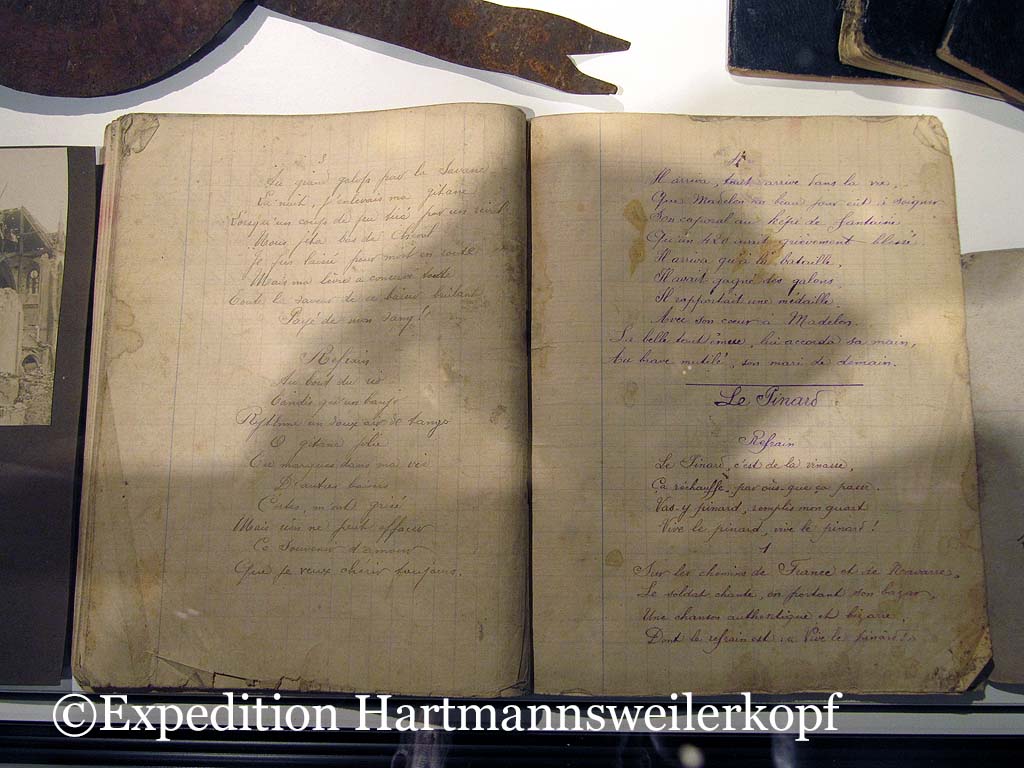 3
Au grand galop pour la Savane
La nuit, j'enlevais ma gitane
Lorsqu'un coup de feu tiré par un rival
Nous jéta bas de Cheval
Je fus laissé pour mort en route
Mais ma lèvre a conservé toute
Toute la saveur de ce baiser brûlant
Payé de mon sang!
Refrain
Au bout du
Tandis qu'un banjo
Rythme un doux air de tango
O gitane jolie
Tu marques dans ma vie
D'autres baisers
Certes, m'ont grisé
Mais rien ne peut effacer
Ce Souvenir d'amour
Que je veux chérir toujours.
4
Il arriva, tout arrive dans la vie,
Que Madelon un beau jour eut à soigner
Son caporal au képi de fantaisie
Qu'un 420 avait grièvement blessé
Il arriva qu'à la bataille,
Il avait gagné des galons,
Il rapportait une médaille
Avec son cœur à Madelon.
La belle tout émue, lui accorda sa main,
Au brave mutilé, son mari de demain.
Le Pinard
Refrain
Le Pinard, c'est de la vinasse,
Ça réchauffe, par oùs-que ça passe.
Vas-y pinard, remplis mon quart
Vive le pinard, vive le pinard!
1
Sur les chemins de France et de Navarre,
Le soldat chante, en portant son bazar,
Une chanson authentique et bizarre
Dont le refrain est Vive le pinard!
©Expedition Hartmannsweilerkopf